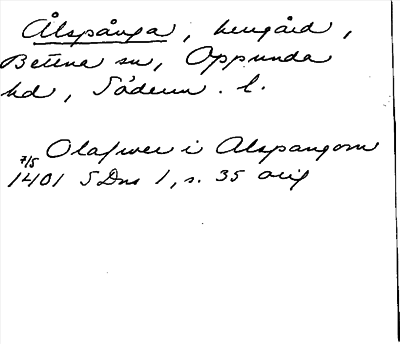 Ålspånga, herrgård,
Bettna sn, Oppunda
hd, Söderm. l.
Olafwer i Alspangom
7/5
1401 SDns 1, s. 35 orig